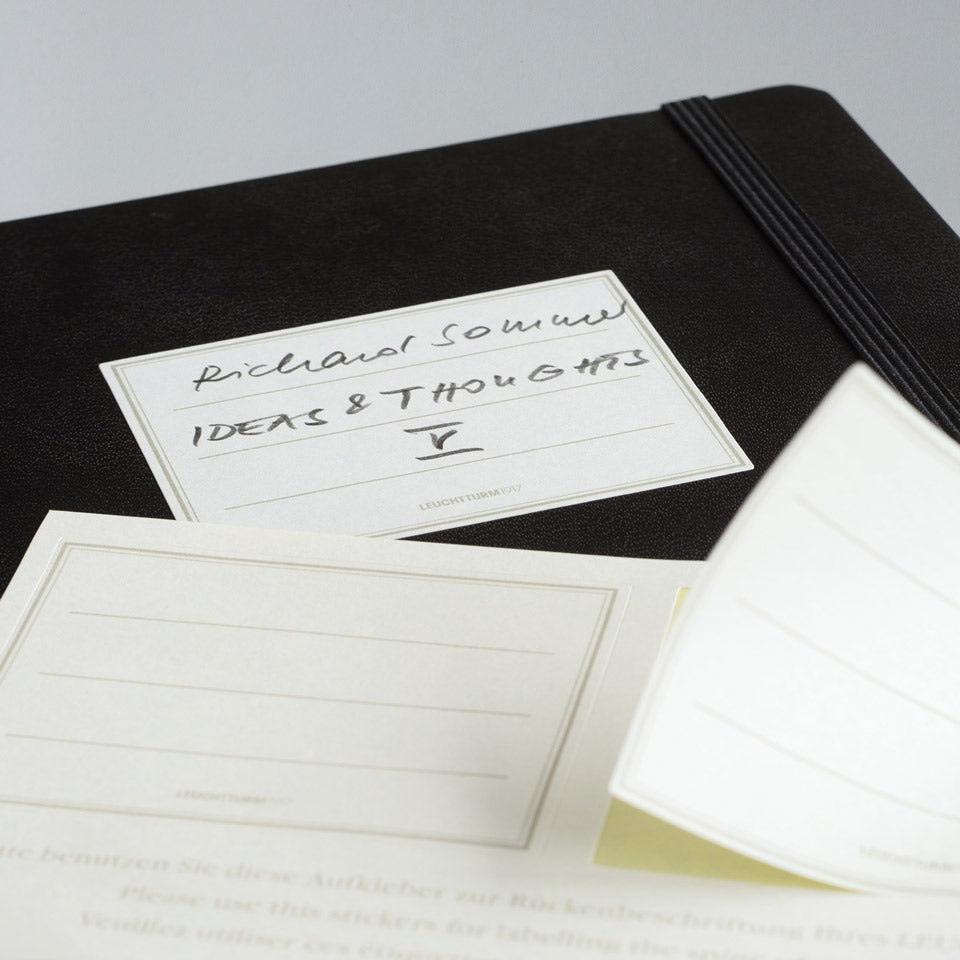 Richard Sommer
IDEAS & THOUGHTS
V
LEUCHTTURM1917
LEUCHTTURM1917
LEUCHTTURM
benutzen Sie diese Aufkleber zur Rückenbeschriftung Ihres
Please use this stickers for labelling the spine
Veuillez utiliser ces